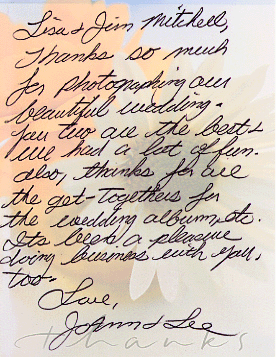 Lisa & Jim Mitchell,
Thanks so much
for photographing our
beautiful wedding.
You two are the best &
we had a lot of fun.
Also, thanks for all
the get-togethers for
the wedding album, etc.
It's been a pleasure
doing business with you,
too.
Love,
JoAnn & Lee
thanks